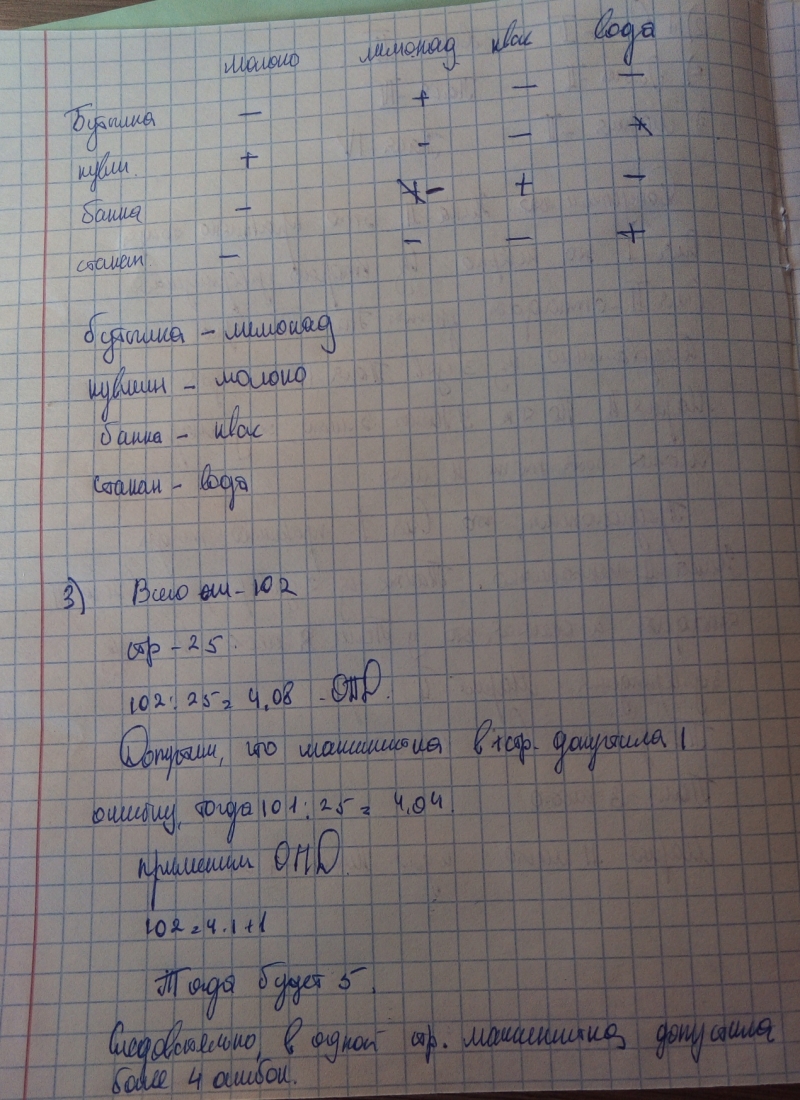 молоко лимонад квас вода
Бутылка - + - -
кувш. + - - +
банка - - + -
стакан - - - +
бутылка - лимонад
кувшин - молоко
банка - квас
стакан - вода
3) Всего ош - 102
стр - 25.
102 : 25 = 4,08 -
Допустим, что машинистка в 1 стр. допустила 1
ошибку, тогда 101 : 25 = 4,04.
применим
102 = 4.1+1
Тогда будет 5.
Следовательно, в одной стр. машинистка допустила
более 4 ошибок.